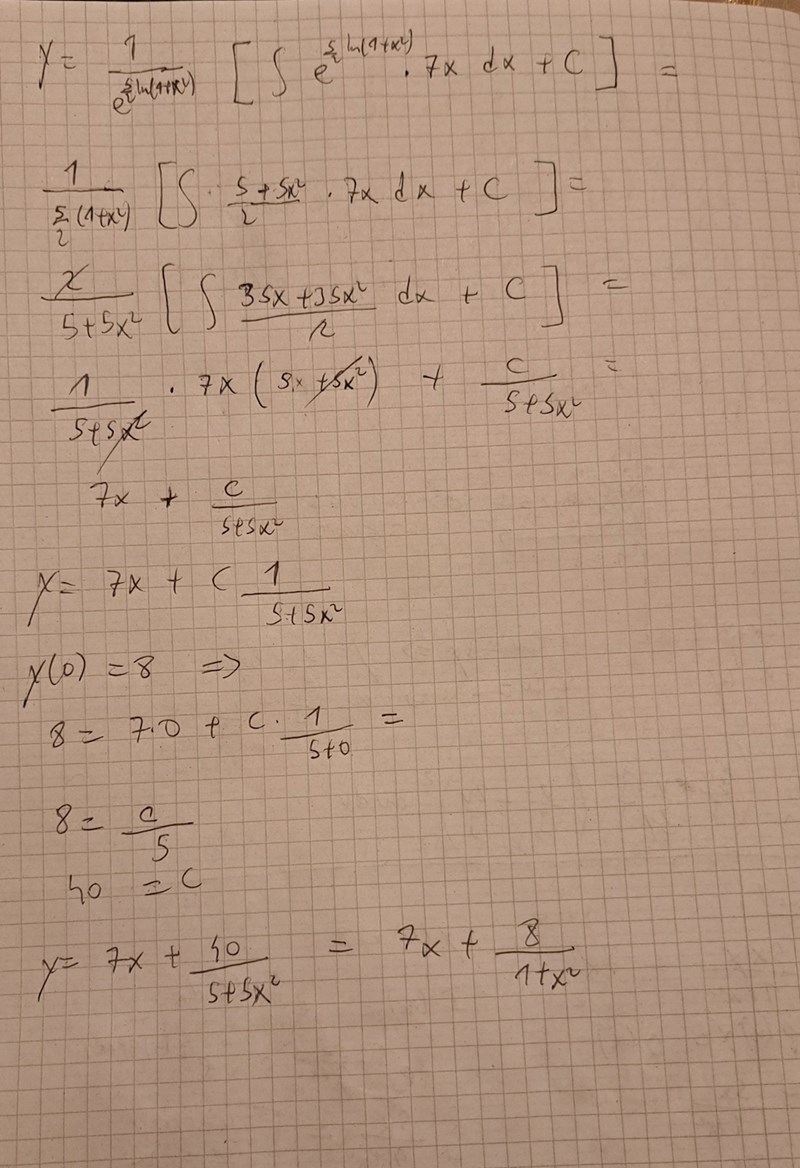 y = 1/e^(5/2 ln(1+x²)) [ ∫ e^(5/2 ln(1+x²)) · 7x dx + C ] =
1/(5/2 (1+x²)) [ ∫ · (5+5x²)/2 · 7x dx + C ] =
2/(5+5x²) [ ∫ (35x+35x²)/2 dx + C ] =
1/(5+5x²) · 7x (5x+5x²) + C/(5+5x²) =
7x + C/(5+5x²)
y = 7x + C 1/(5+5x²)
y(0) = 8 =>
8 = 7·0 + C · 1/(5+0) =
8 = C/5
40 = C
y = 7x + 40/(5+5x²) = 7x + 8/(1+x²)